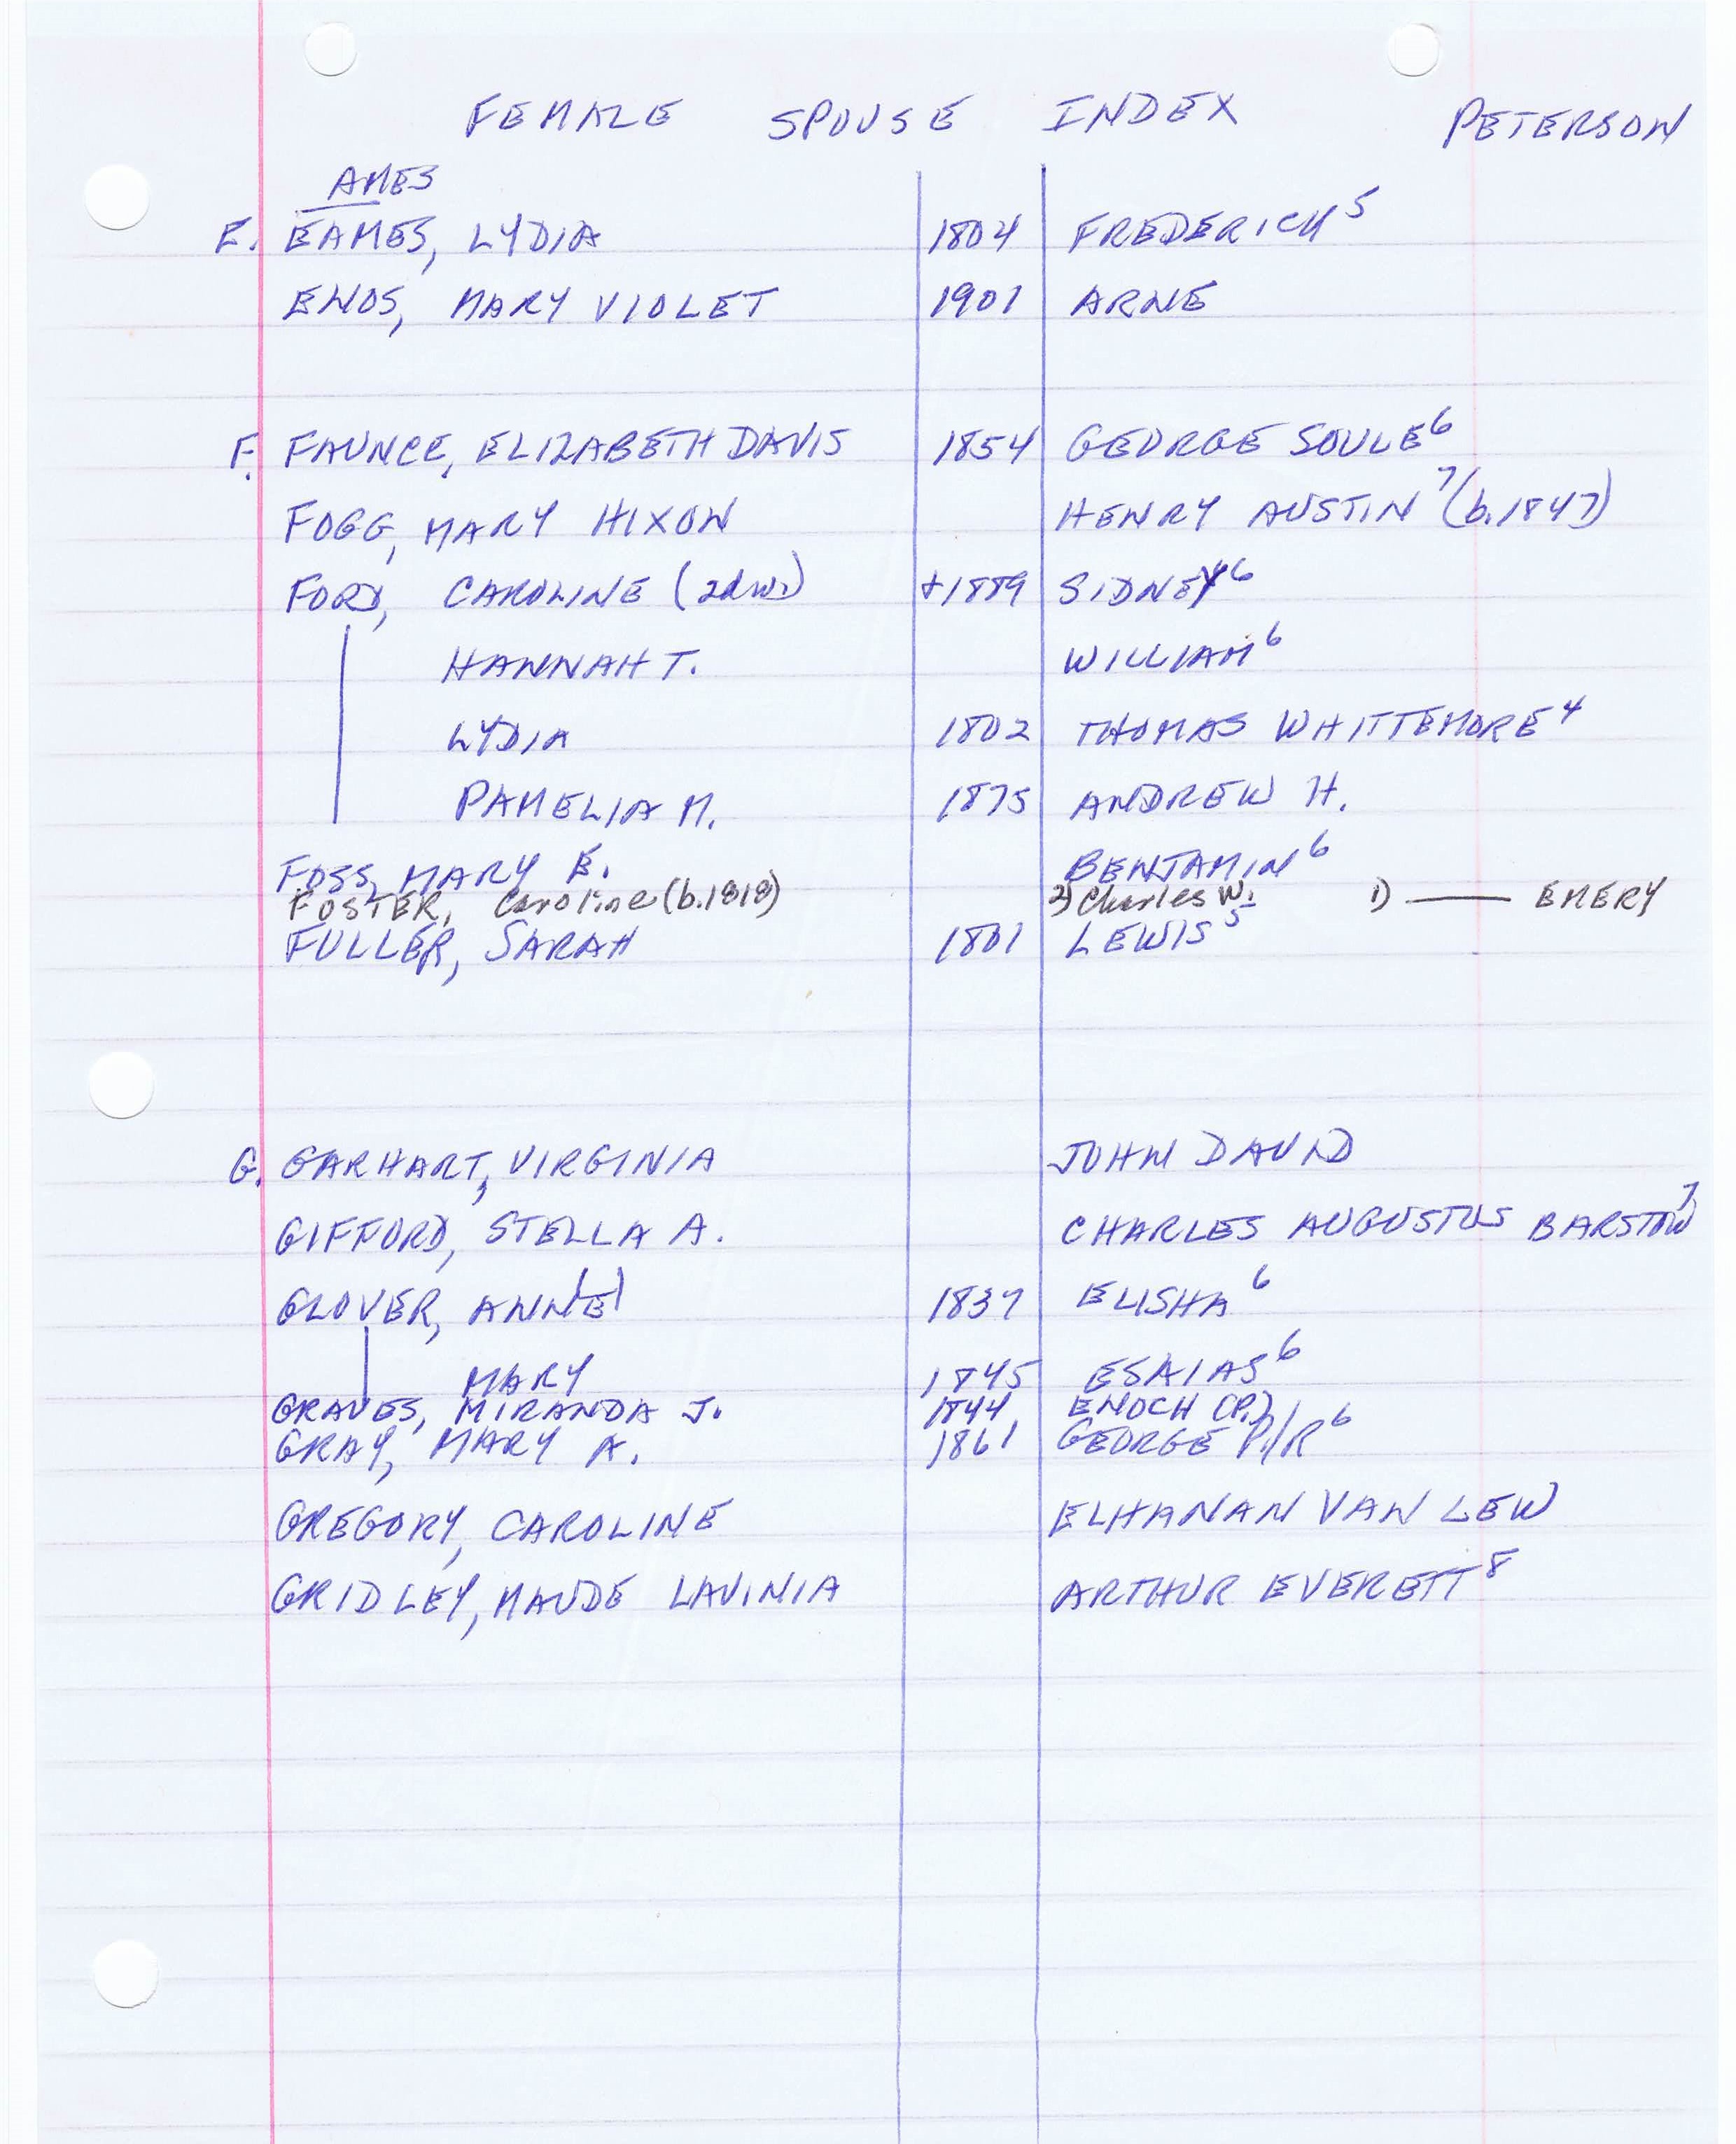 FEMALE SPOUSE INDEX PETERSON
AMES
E. EAMES, LYDIA 1804 FREDERICK⁵
ENOS, MARY VIOLET 1901 ARNE
F. FAUNCE, ELIZABETH DAVIS 1854 GEORGE SOULE⁶
FOGG, MARY HIXON HENRY AUSTIN⁷ (b.1847)
FORD, CAROLINE (2d w.) +1889 SIDNEY⁶
HANNAH T. WILLIAM⁶
LYDIA 1802 THOMAS WHITTEMORE⁴
PAMELIA M. 1875 ANDREW H.
FOSS, MARY E. BENJAMIN⁶
FOSTER, Caroline (b.1818) 2) Charles W. 1) —— EMERY
FULLER, SARAH 1801 LEWIS⁵
G. GARHART, VIRGINIA JOHN DAVID
GIFFORD, STELLA A. CHARLES AUGUSTUS BARSTOW⁷
GLOVER, ANN(E) 1837 ELISHA⁶
MARY 1845 ESAIAS⁶
GRAVES, MIRANDA J. 1844 ENOCH (P.)
GRAY, MARY A. 1861 GEORGE P./R⁶
GREGORY, CAROLINE ELHANAN VAN LEW
GRIDLEY, MAUDE LAVINIA ARTHUR EVERETT⁸